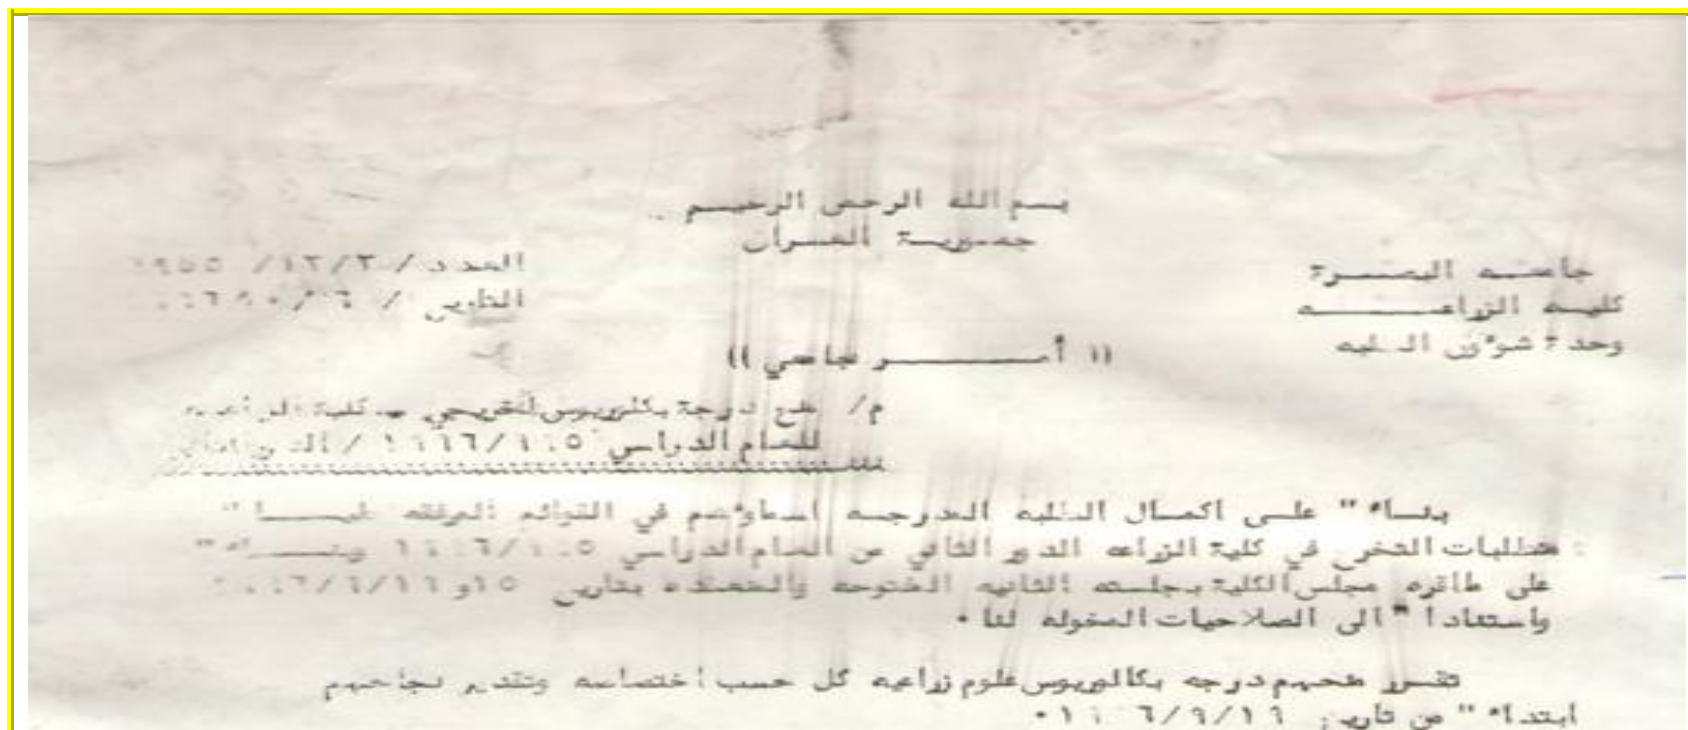 بسم الله الرحمن الرحيم
جمهورية العراق
جامعه البصرة
كليه الزراعـــــــه
وحدة شؤون الطلبه
العدد / ٣/١٢/ ٦٩٥٥
التاريخ /
(( أمـــــــر جامعي ))
م/ منح درجة بكلوريوس لخريجي كلية الزراعه
للعام الدراسي
بنــاء" علــى اكمــال الطلبه المدرجــه اسماؤهم في القوائم المرفقه طيــــا"
متطلبات التخرج في كلية الزراعه الدور الثاني من العام الدراسي وبنــــاء"
على ماقرره مجلس الكلية بجلسته الثانيه المفتوحه والمنعقده بتاريخ ١٥و١٦/
واستنادا" الى الصلاحيات المخوله لنا .
تقــرر منحهم درجه بكالوريوس علوم زراعيه كل حسب اختصاصه وتقدير نجاحهم
ابتداء" من تاريخ